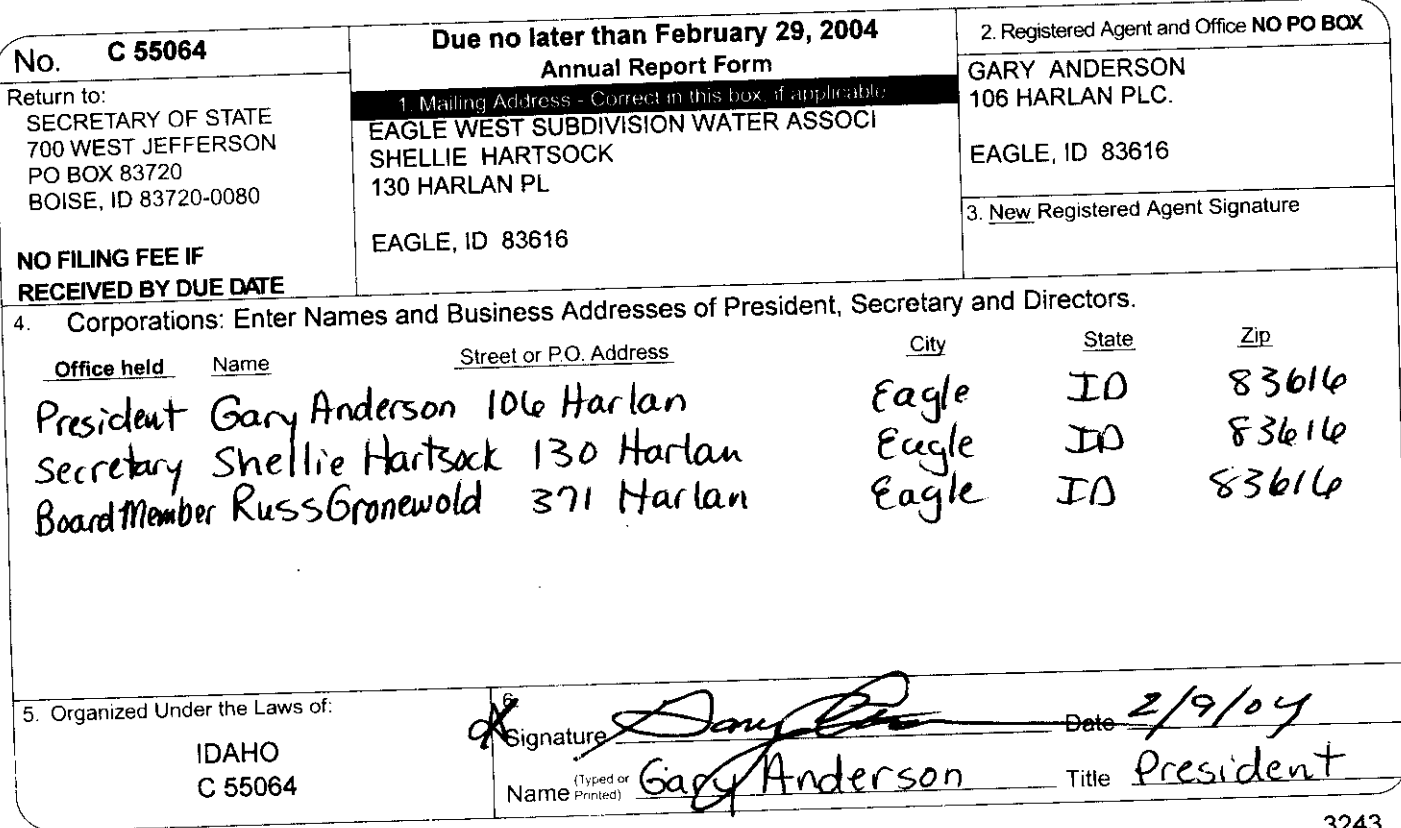 No. C 55064
Return to:
SECRETARY OF STATE
700 WEST JEFFERSON
PO BOX 83720
BOISE, ID 83720-0080
NO FILING FEE IF
RECEIVED BY DUE DATE
Due no later than February 29, 2004
Annual Report Form
1. Mailing Address - Correct in this box, if applicable
EAGLE WEST SUBDIVISION WATER ASSOCI
SHELLIE HARTSOCK
130 HARLAN PL
EAGLE, ID 83616
2. Registered Agent and Office NO PO BOX
GARY ANDERSON
106 HARLAN PLC.
EAGLE, ID 83616
3. New Registered Agent Signature
4. Corporations: Enter Names and Business Addresses of President, Secretary and Directors.
Office held Name Street or P.O. Address City State Zip
President Gary Anderson 106 Harlan Eagle ID 83616
Secretary Shellie Hartsock 130 Harlan Eagle ID 83616
Board Member Russ Gronewold 371 Harlan Eagle ID 83616
5. Organized Under the Laws of:
IDAHO
C 55064
6.
Signature Gary Date 2/9/04
Name (Typed or Printed) Gary Anderson Title President
3243